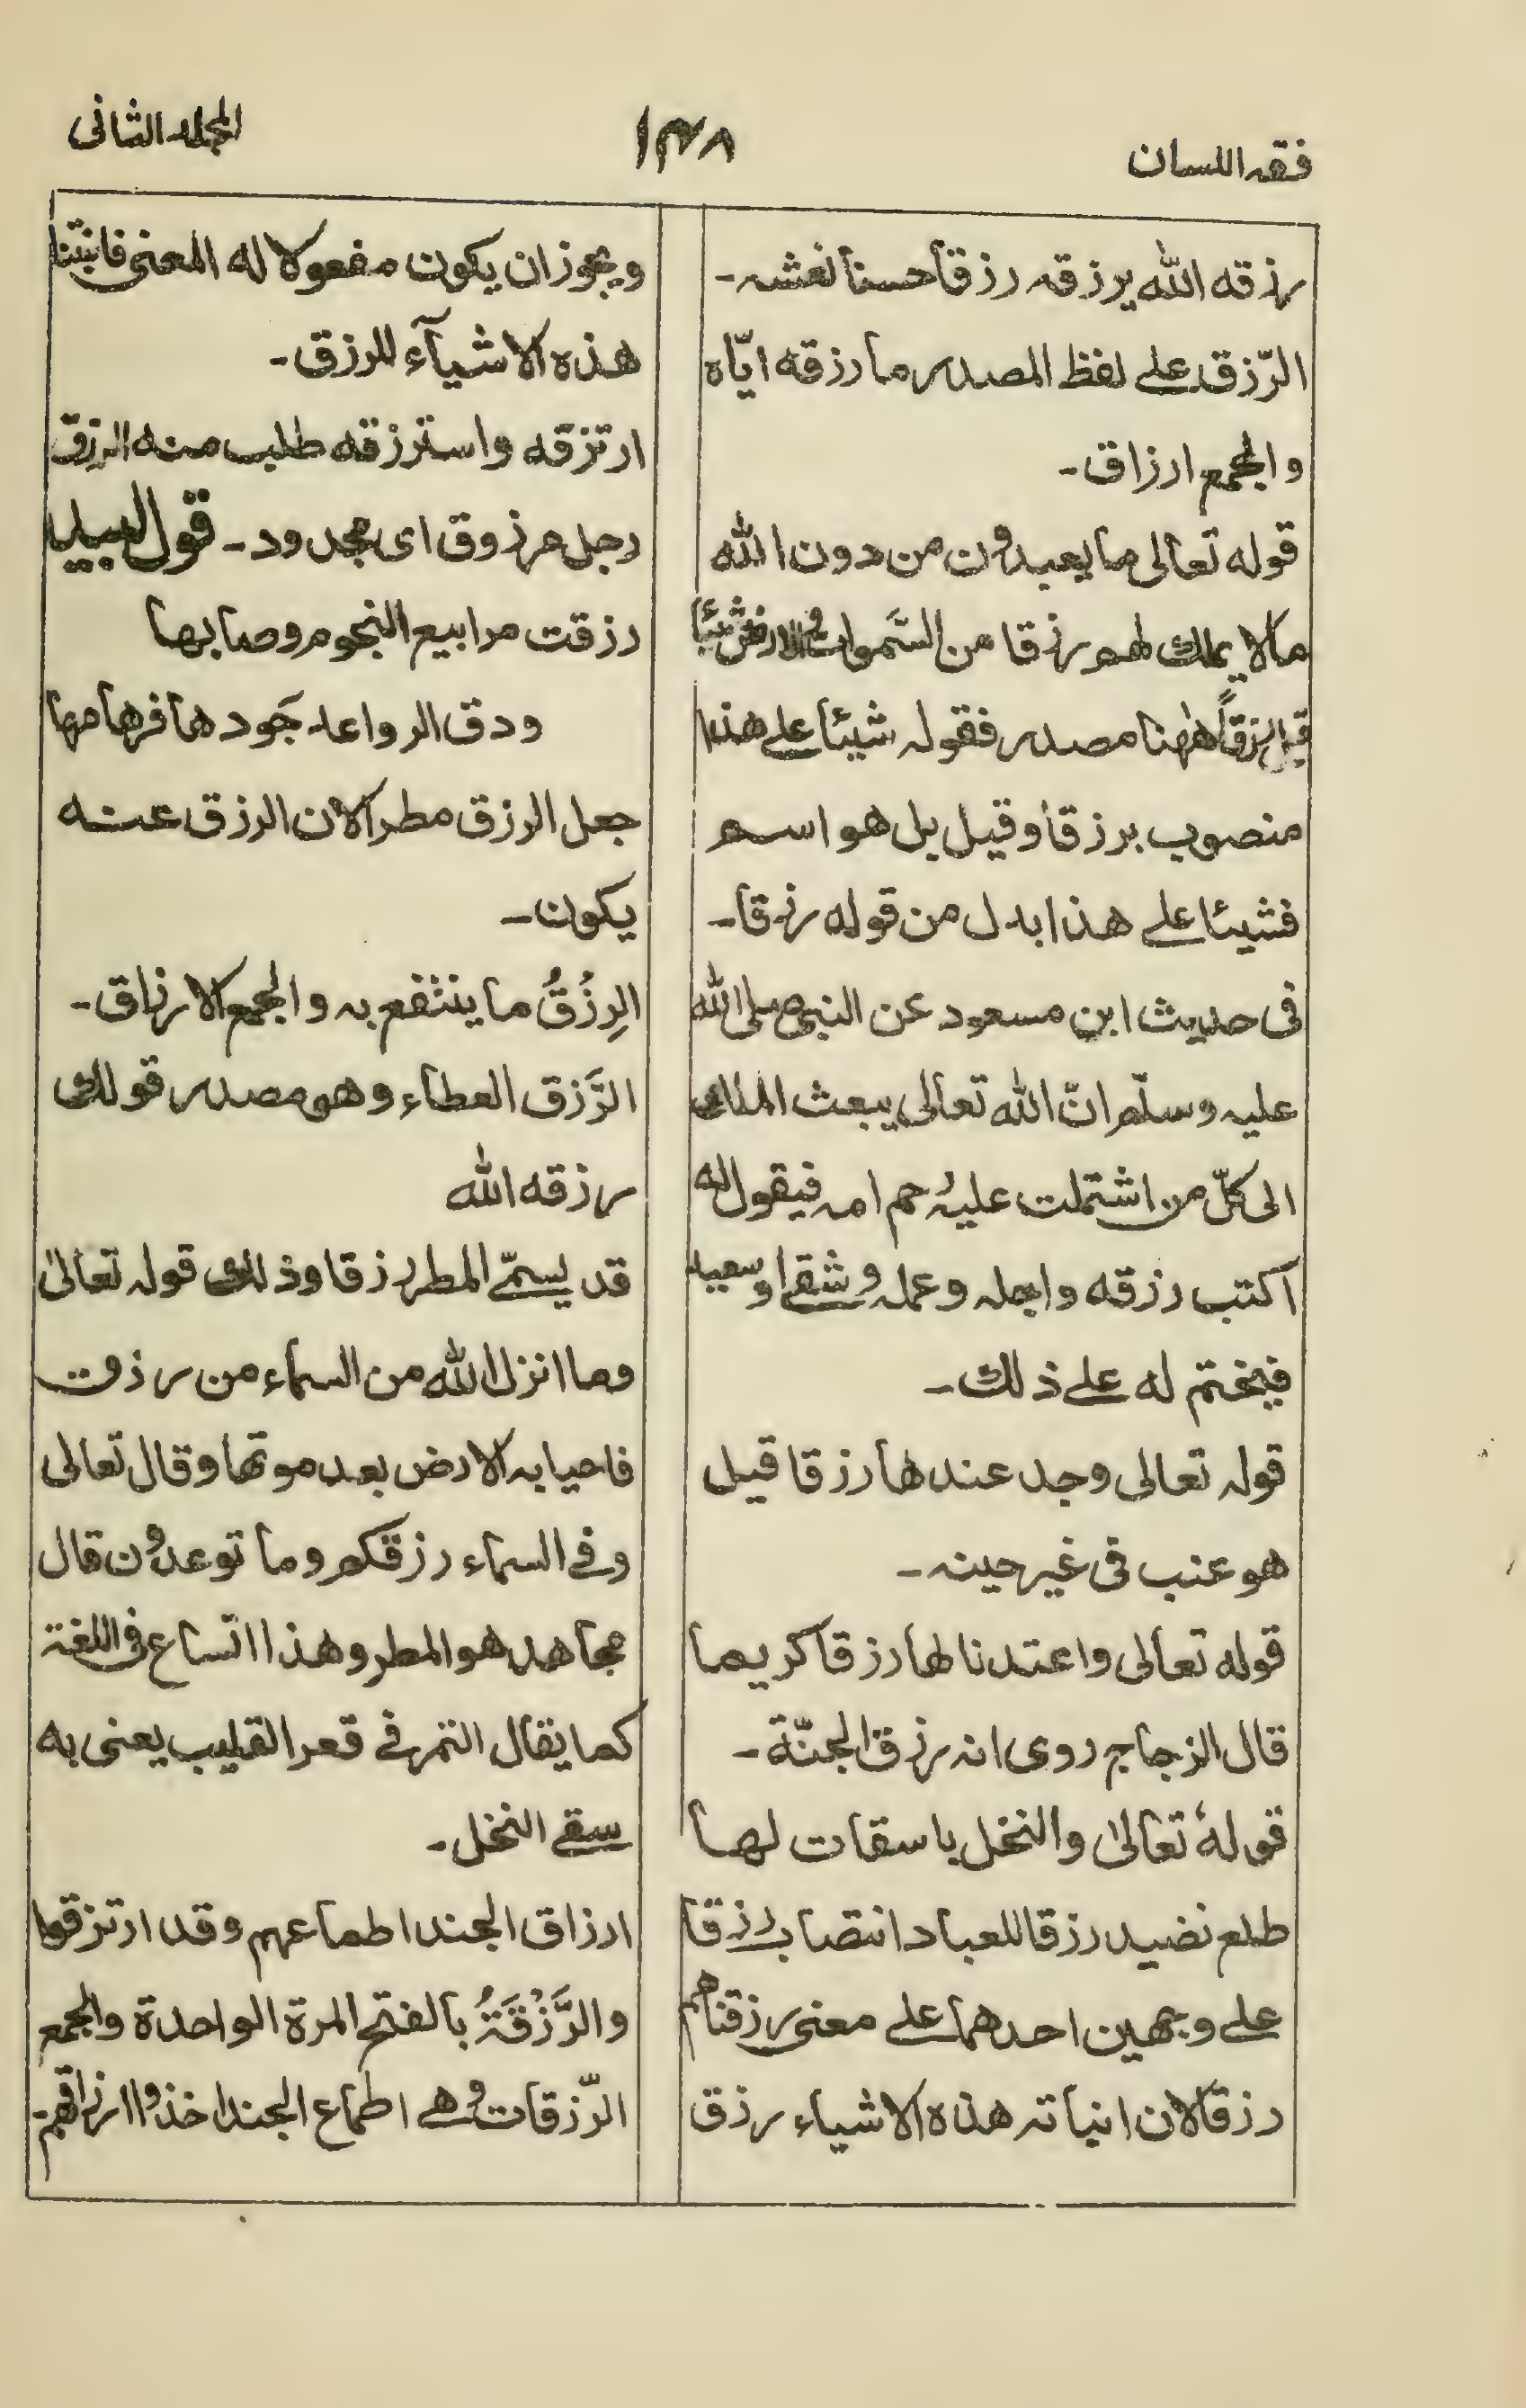 فقه اللسان
١٣٨
المجلد الثانى
رزقه الله يرزقه رزقاً حسناً نعشه -
الرّزق على لفظ المصدر ما رزقه ايّاه
والجمع ارزاق -
قوله تعالى ما يعبدون من دون الله
مالا يملك لهم رزقا من السّموات والارض شيئاً
قيل رزقاً ههنا مصدر فقوله شيئاً على هذا
منصوب برزقاً وقيل بل هو اسم
فشيئا على هذا بدل من قوله رزقاً -
فى حديث ابن مسعود عن النبى صلى الله
عليه وسلّم انّ الله تعالى يبعث الملك
الى كلّ من اشتملت عليه رحم امه فيقول له
اكتب رزقه واجله وعمله وشقى او سعيد
فيختم له على ذلك -
قوله تعالى وجد عندها رزقا قيل
هو عنب فى غير حينه -
قوله تعالى واعتدنا لها رزقاً كريما
قال الزجاج روى انه رزق الجنّة -
قوله تعالى والنخل باسقات لها
طلع نضيد رزقا للعباد انتصاب رزقا
على وجهين احدهما على معنى رزقناهم
رزقا لان انباته هذه الاشياء رزق
ويجوز ان يكون مفعولا له المعنى فانبتنا
هذه الاشيآء للرزق -
ارتزقه واسترزقه طلب منه الرزق
رجل مرزوق اى مجدود - قول لبيد
رزقت مرابيع النجوم وصابها
ودق الرواعد جَودها فرهامها
جعل الرزق مطرا لان الرزق عنه
يكون -
الرِزْقُ ما ينتفع به والجمع الارزاق -
الرَّزق العطاء وهو مصدر قولك
رزقه الله
قد يسمّى المطر رزقا وذلك قوله تعالىٰ
وما انزل الله من السماء من رزق
فاحيا به الارض بعد موتها وقال تعالى
وفى السماء رزقكم وما توعدون قال
مجاهد هو المطر وهذا اتساع فى اللغة
كما يقال التمر فى قعر القليب يعنى به
سقى النخل -
ارزاق الجند اطماعهم وقد ارتزقوا
والرَّزْقَةُ بالفتح المرة الواحدة والجمع
الرّزقات وهى اطماع الجند اخذوا ارزاقهم -